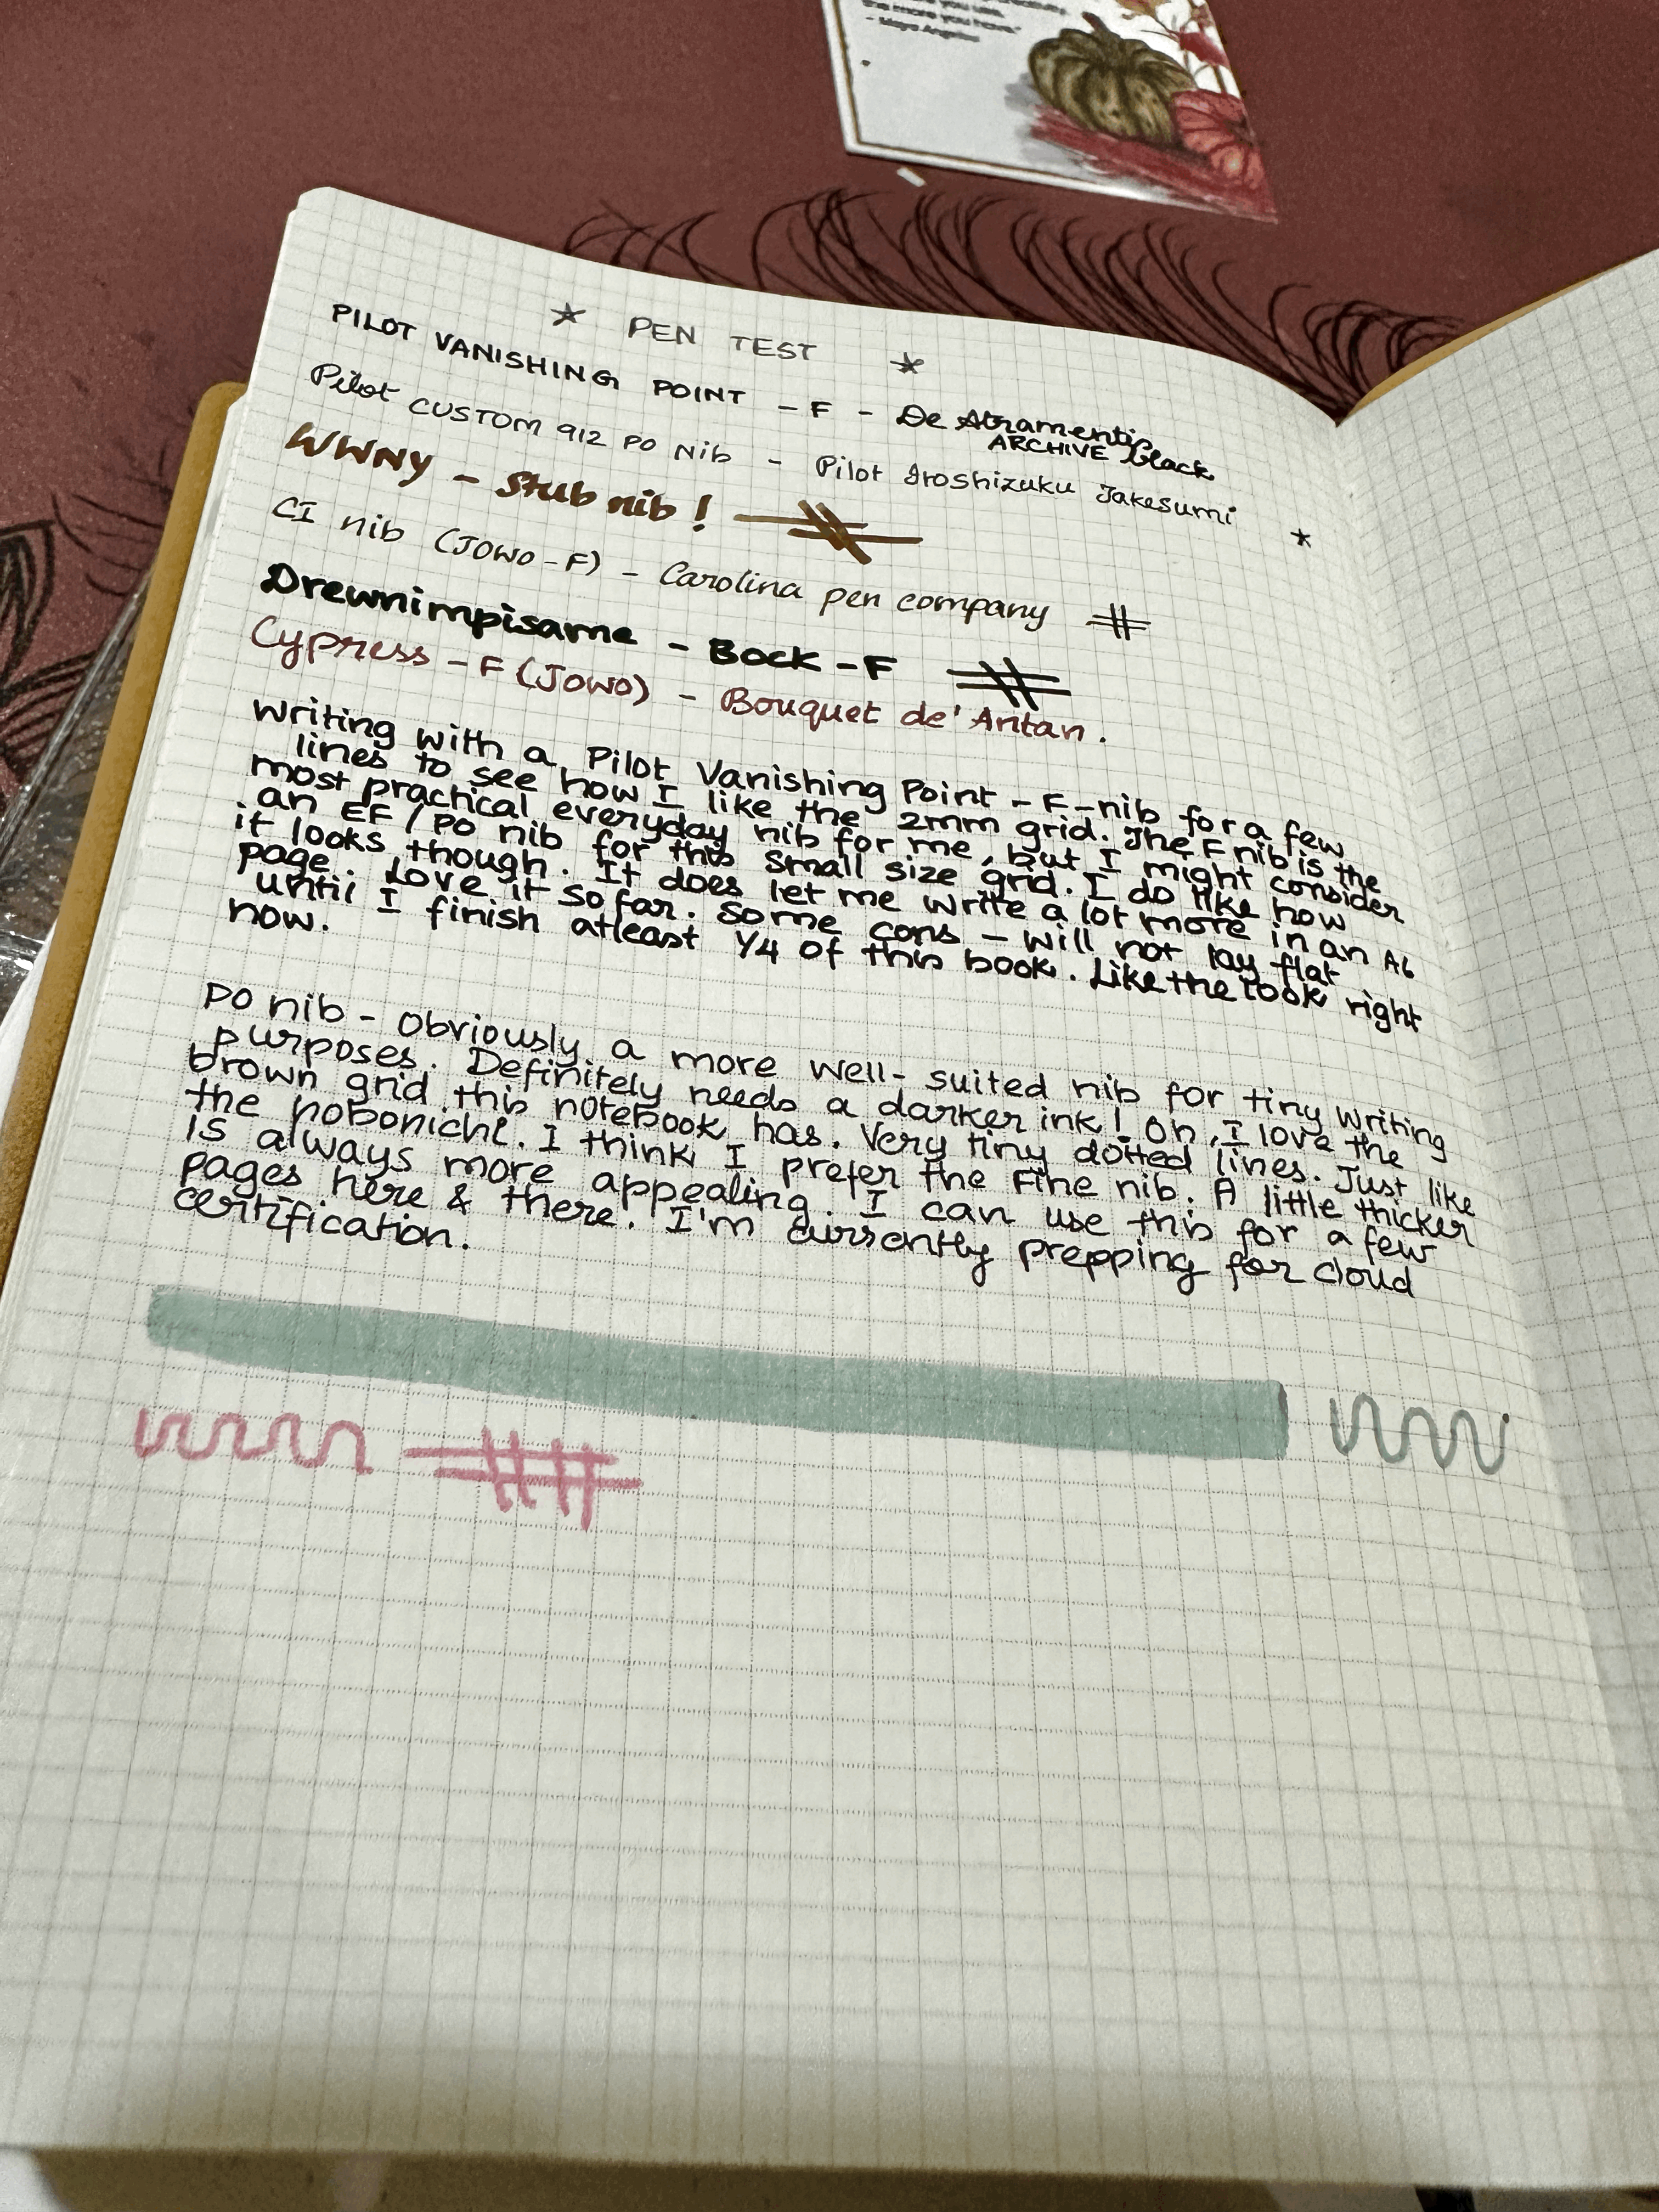 the more you have."
- Maya Angelou
PEN TEST
PILOT VANISHING POINT - F - De Atramentis
ARCHIVE black
Pilot CUSTOM 912 PO Nib - Pilot Iroshizuku Takesumi
WWNY - Stub nib!
CI nib (JOWO-F) - Carolina pen company
Drewnimpisame - Bock - F
Cypress - F (JOWO) - Bouquet de' Antan.
Writing with a Pilot Vanishing Point - F-nib for a few
lines to see how I like the 2mm grid. The F nib is the
most practical everyday nib for me, but I might consider
an EF/PO nib for this small size grid. I do like how
it looks though. It does let me write a lot more in an A6
page. Love it so far. Some cons - will not lay flat
until I finish atleast 1/4 of this book. Like the look right
now.
PO nib - Obviously a more well-suited nib for tiny writing
purposes. Definitely needs a darker ink! Oh, I love the
brown grid this notebook has. Very tiny dotted lines. Just like
the hobonichi. I think I prefer the Fine nib. A little thicker
is always more appealing. I can use this for a few
pages here & there. I'm currently prepping for cloud
certification.